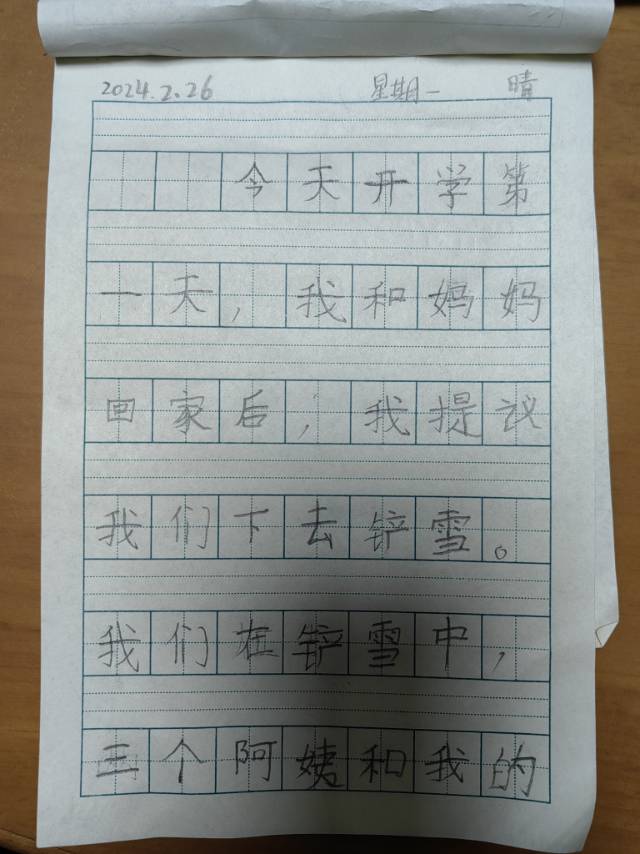 2024.2.26 星期一 晴
今天开学第
一天，我和妈妈
回家后，我提议
我们下去铲雪。
我们在铲雪中，
三个阿姨和我的